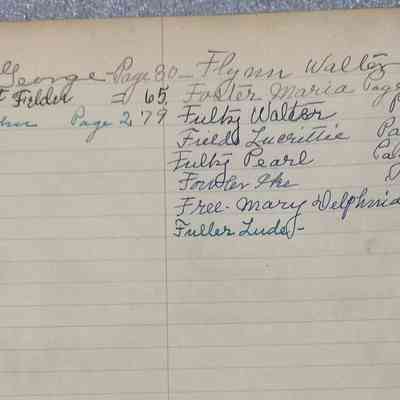 George - Page 80 - Flynn Walter
Fielder = 65 Foster Maria Page
Page 279 Fultz Walter
Fields Lucrittie Pa
Fultz Pearl Pa
Fowler Ike
Free - Mary Delphnia
Fuller Lude -